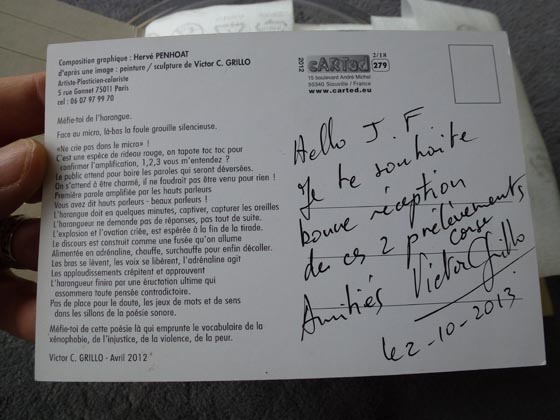 Composition graphique : Hervé PENHOAT
d'après une image : peinture / sculpture de Victor C. GRILLO
Artiste-Plasticien-coloriste
5 rue Gonnet 75011 Paris
tel : 06 07 97 99 70
Méfie-toi de l'harangue.
Face au micro, là-bas la foule grouille silencieuse.
«Ne crie pas dans le micro» !
C'est une espèce de rideau rouge, on tapote toc toc pour
confirmer l'amplification, 1,2,3 vous m'entendez ?
Le public attend pour boire les paroles qui seront déversées.
On s'attend à être charmé, il ne faudrait pas être venu pour rien !
Première parole amplifiée par les hauts parleurs
Vous avez dit hauts parleurs - beaux parleurs !
L'harangue doit en quelques minutes, captiver, capturer les oreilles
L'harangueur ne demande pas de réponses, pas tout de suite.
L'explosion et l'ovation criée, est espérée à la fin de la tirade.
Le discours est construit comme une fusée qu'on allume
Alimentée en adrénaline, chauffe, surchauffe pour enfin décoller.
Les bras se lèvent, les voix se libèrent, l'adrénaline agit
Les applaudissements crépitent et approuvent
L'harangueur finira par une éructation ultime qui
assommera toute pensée contradictoire.
Pas de place pour le doute, les jeux de mots et de sens
dans les sillons de la poésie sonore.
Méfie-toi de cette poésie là qui emprunte le vocabulaire de la
xénophobie, de l'injustice, de la violence, de la peur.
Victor C. GRILLO - Avril 2012
2012
cARTed
2/18
279
15 boulevard André Michel
www.carted.eu
Hello J.F
Je te souhaite
bonne réception
de ces 2 prélèvements
corse
Amitiés Victor Grillo
le 2-10-2013